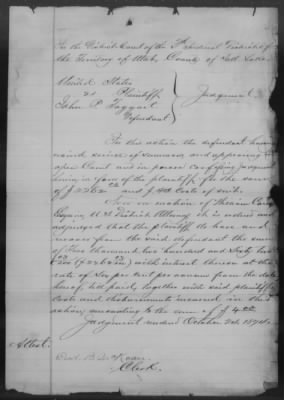 In the District Court of the 3rd Judicial District of
the Territory of Utah, County of Salt Lake
United States
vs Plaintiff
John P. Taggart
Defendant
Judgment
In this action the defendant having
waived service of summons and appearing in
open Court and in person confessing judgment
herein in favor of the plaintiff for the sum
of $ 2262 and $ 4 Costs of suit.
Now on motion of Carey
Esquire, U.S. District Attorney it is ordered and
adjudged that the plaintiff do have and
recover from the said defendant the sum
of Two thousand two hundred and Sixty two
($2262) with interest thereon at the
rate of Six per cent per annum from the date
hereof, till paid, together with said plaintiff's
Costs and disbursements incurred in this
action, amounting to the sum of $ 4
Judgment rendered October 1874.
Attest.
B. McKean
Clerk.